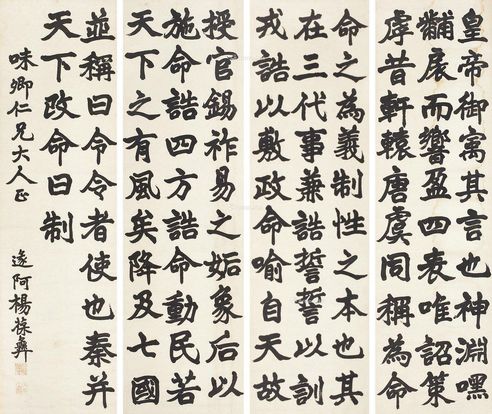 皇帝御寓其言也神淵嘿
黼扆而響盈四表唯詔策
虖昔軒轅唐虞同稱為命
命之為義制性之本也其
在三代事兼誥誓誓以訓
戎誥以敷政命喻自天故
授官錫祚易之姤象后以
施命誥四方誥命動民若
天下之有風矣降及七國
並稱曰令令者使也秦并
天下改命曰制
味卿仁兄大人正
遯阿楊葆彝